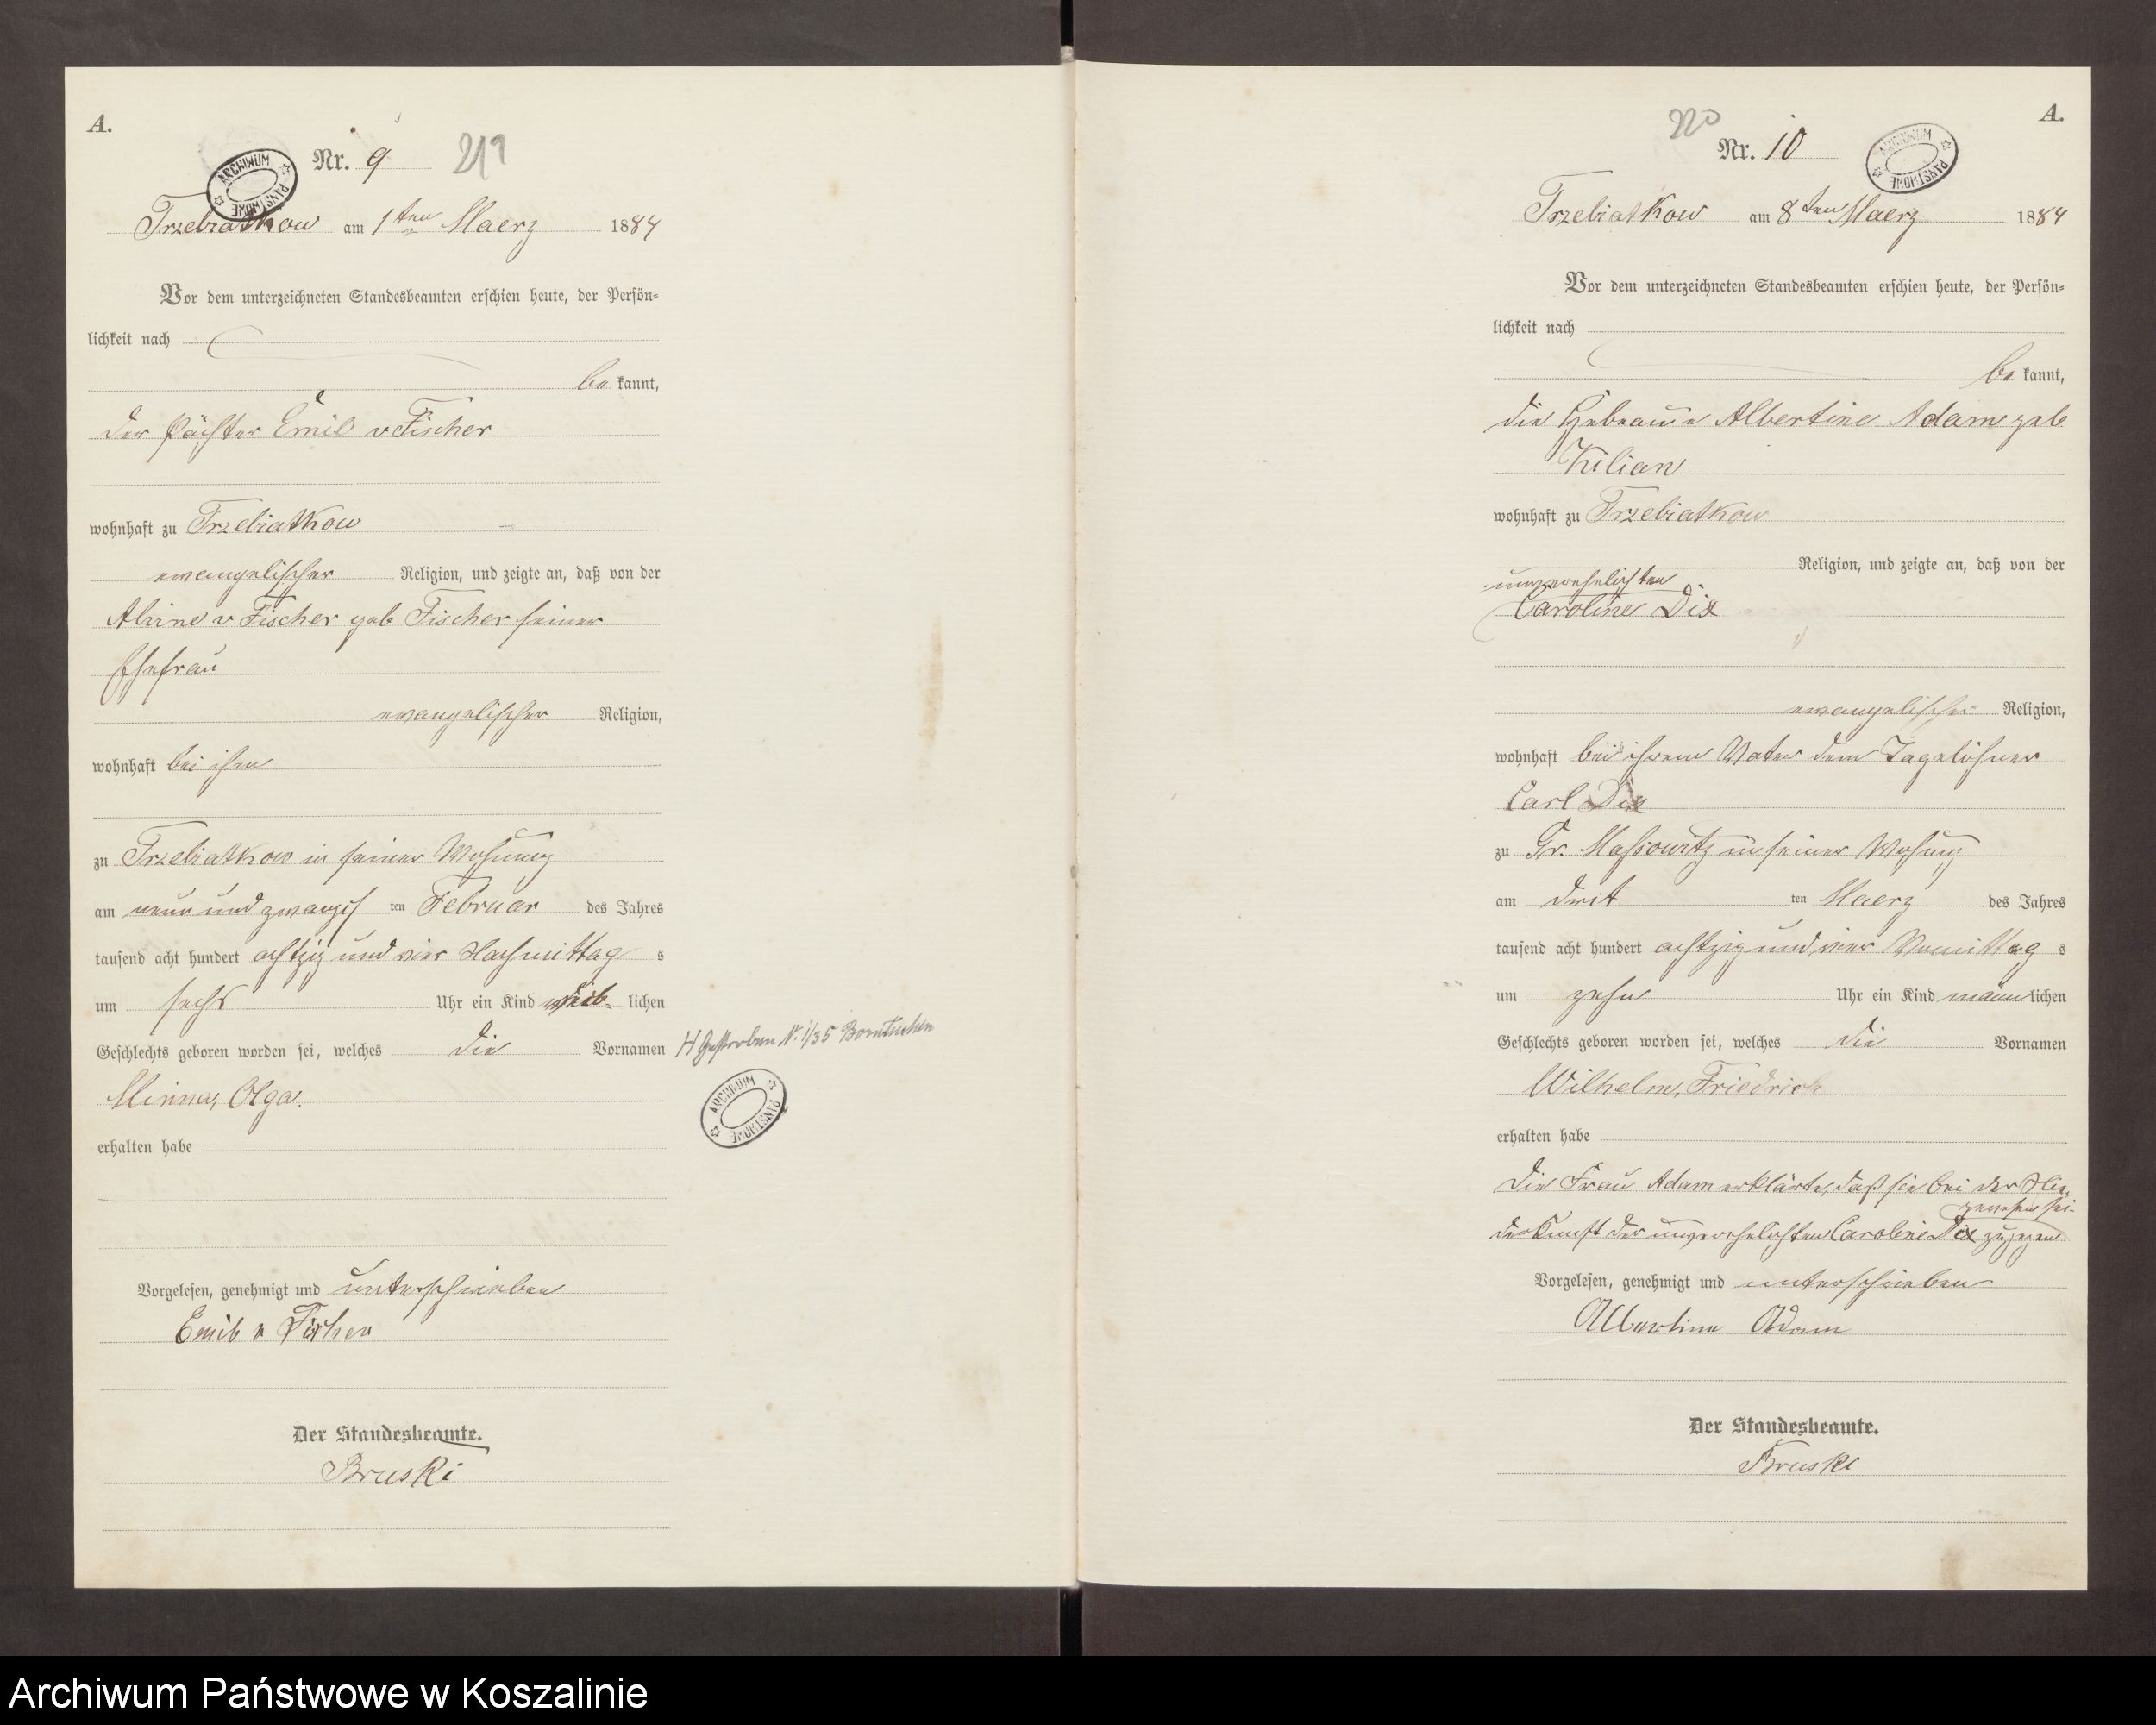 A.
Nr. 9 219
ARCHIWUM PAŃSTWOWE
Trzebiatkow am 1ten Maerz 1884
Vor dem unterzeichneten Standesbeamten erschien heute, der Persön=
lichkeit nach
be kannt,
der Pächter Emil v Fischer
wohnhaft zu Trzebiatkow
evangelischer Religion, und zeigte an, daß von der
v Fischer geb Fischer seiner
Ehefrau
evangelischer Religion,
wohnhaft bei ihm
zu Trzebiatkow in seiner Wohnung
am neun und zwanzigs ten Februar des Jahres
tausend acht hundert achtzig und vier Nachmittag s
um sechs Uhr ein Kind weib- lichen
Geschlechts geboren worden sei, welches die Vornamen
Minna, Olga.
erhalten habe
Vorgelesen, genehmigt und unterschrieben
Emil v Fischer
Der Standesbeamte.
Bruski
H Gestorben N. 1/35 Borntuchen
ARCHIWUM PAŃSTWOWE
220
A.
Nr. 10
ARCHIWUM PAŃSTWOWE
Trzebiatkow am 8ten Maerz 1884
Vor dem unterzeichneten Standesbeamten erschien heute, der Persön=
lichkeit nach
be kannt,
die Hebeame Albertine Adam geb
Kilian
wohnhaft zu Trzebiatkow
Religion, und zeigte an, daß von der
unverehelichten
Caroline Dix
evangelischer Religion,
wohnhaft bei ihrem Vater dem Tagelöhner
Carl Dix
zu Gr. Massowitz in seiner Wohnung
am drit ten Maerz des Jahres
tausend acht hundert achtzig und vier Vormittag s
um zehn Uhr ein Kind männ lichen
Geschlechts geboren worden sei, welches die Vornamen
Wilhelm, Friedrich
erhalten habe
Die Frau Adam erklärte, daß sie bei der Nie-
gewesen sei.
derkunft der unverehelichten Caroline Dix zugegen
Vorgelesen, genehmigt und unterschrieben
Albertine Adam
Der Standesbeamte.
Bruski
Archiwum Państwowe w Koszalinie